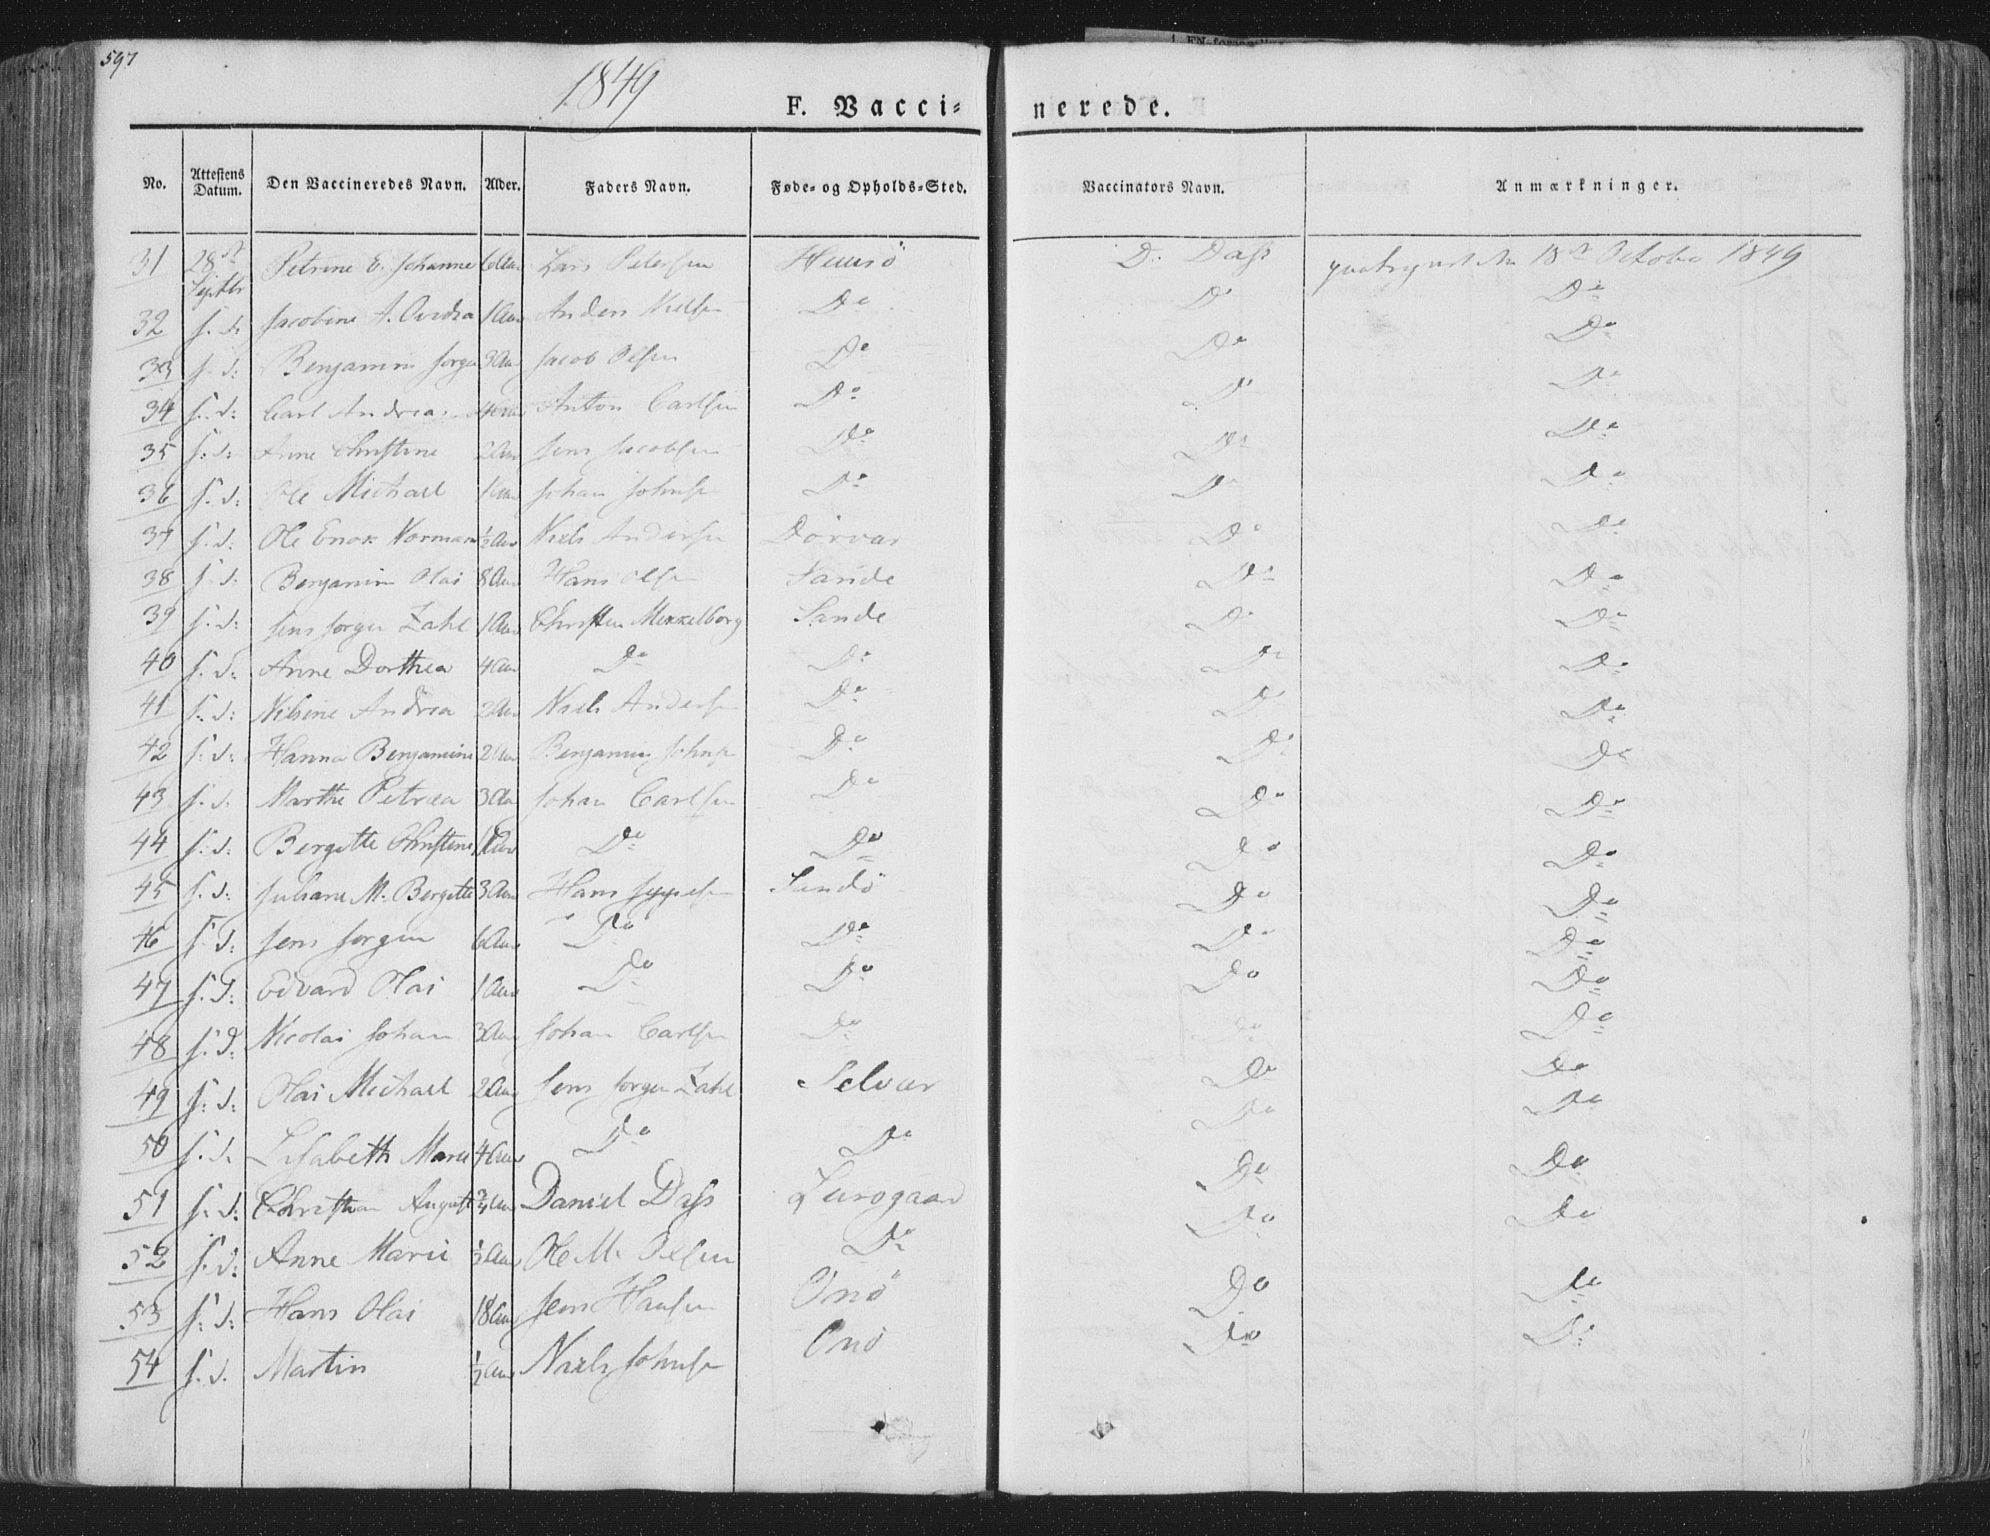 597
1849
F. Vacci- nerede.
No. Attestens Datum. Den Vaccineredes Navn. Alder. Faders Navn. Føde- og Opholds-Sted. Vaccinators Navn. Anmærkninger.
31 28de Septbr Petrine E. Johanne 6 Aar Lars Petersen D. Dass den 18de October 1849
32 s. d. Jacobine A. 1 Aar Anders Nielsen Do Do Do
33 s. d: Benjamin Jørgen 3 Aar Jacob Olsen Do Do Do
34 s. d: Carl Andreas Anton Carlsen Do Do Do
35 s: d: Anne Christine 2 Aar Jens Jacobsen Do Do Do
36 s. d: Ole Michael 1 Aar Johan Johnsen Do Do Do
37 s. d: Ole Enok Norman ½ Aar Niels Andersen Dørvær Do Do
38 s. d: Benjamin Olai 8 Aar Hans Olsen Sande Do Do
39 s. d: Jens Jørgen Zahl 1 Aar Christen Mekkelborg Sande Do Do
40 s. d: Anne Dorthea 4 Aar Do Do Do Do
41 s. d: Nilsine Andrea 2 Aar Niels Andersen Do Do Do
42 s. d: Hanna Benjamine 2 Aar Benjamin Johnsen Do Do Do
43 s. d. Marthe Petrea 3 Aar Johan Carlsen Do Do Do
44 s. d: Bergitte Christine Do Do Do Do
45 s. d: Juliane M. Bergitte 3 Aar Hans Jeppesen Sandø Do Do
46 s. d: Jens Jørgen 6 Aar Do Do Do Do
47 s. d: Edvard Olai 1 Aar Do Do Do Do
48 s. d: Nicolai Johan 3 Aar Johan Carlsen Do Do Do
49 s: d: Olai Michael 2 Aar Jens Jørgen Zahl Selvær Do Do
50 s. d. Lisabeth Marie 4 Aar Do Do Do Do
51 s. d: Christian August ¾ Aar Daniel Dass Lurøgaard Do Do
52 s. d: Anne Marie ½ Aar Ole M. Olsen Do Do Do
53 s: d: Hans Olai 18 Aar Jens Hansen Onø Do Do
54 s. d. Martin ½ Aar Niels Johnsen Onø Do Do